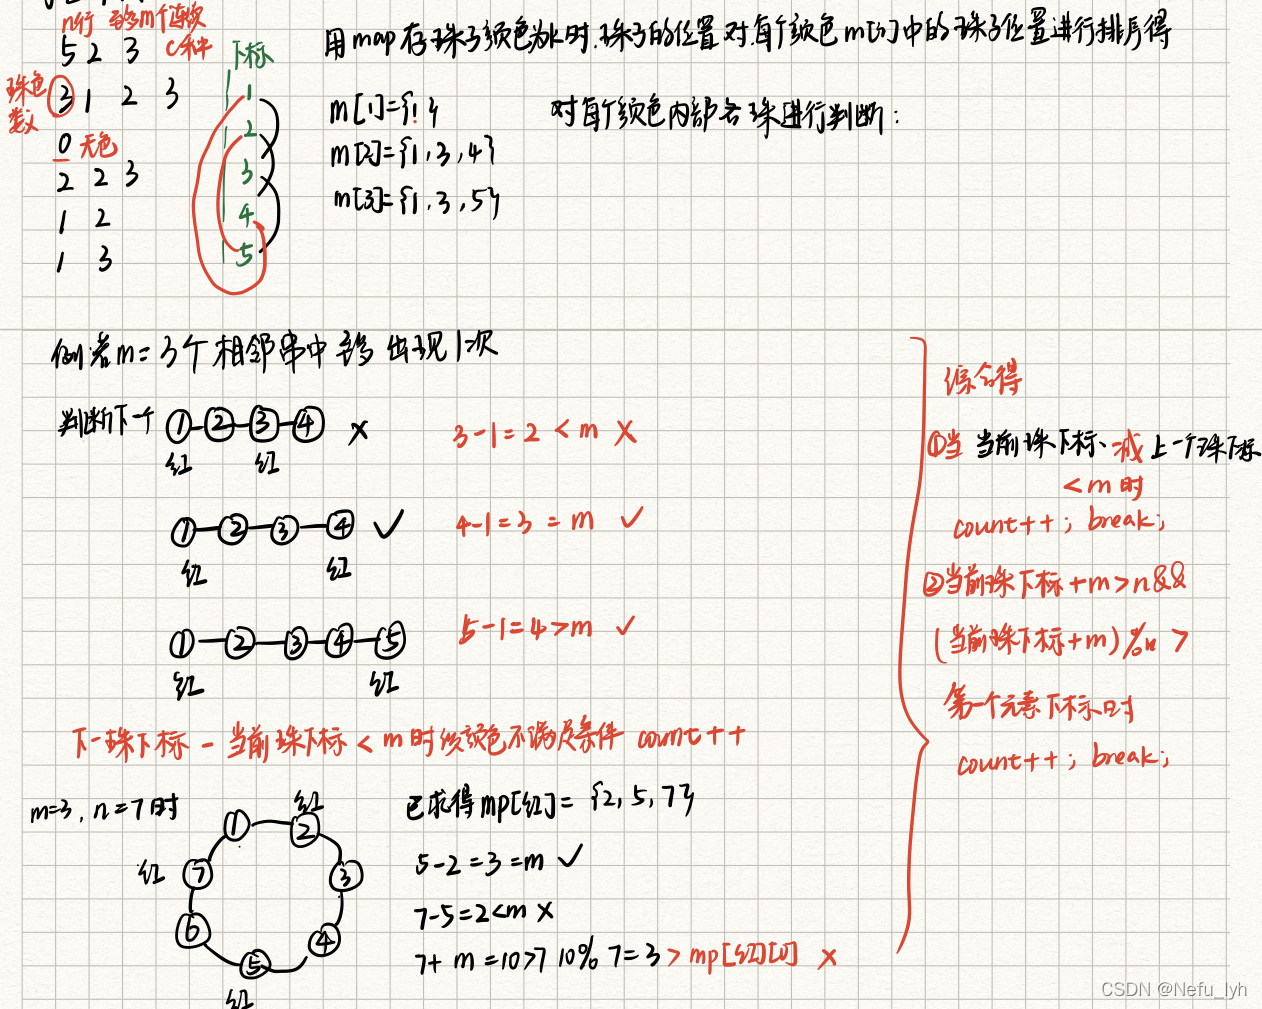 n行 至多m个连续
5 2 3 c种
下标
珠色数
3 1 2 3
0 无色
2 2 3
1 2
1 3
1
2
3
4
5
用map存珠子颜色为k时.珠子的位置 对每个颜色m[i]中的珠子位置进行排序得
m[1]={1}
m[2]={1,3,4}
m[3]={1,3,5}
对每个颜色内部各珠进行判断:
例若m=3个相邻串中至多出现1次
判断下一个
① ② ③ ④ ×
红 红
3-1=2<m ×
① ② ③ ④ ✓
红 红
4-1=3=m ✓
① ② ③ ④ ⑤
红 红
5-1=4>m ✓
下一珠下标-当前珠下标<m时该颜色不满足条件 count++
m=3,n=7时
① ② ③ ④ ⑤ ⑥ ⑦
红
红
红
已求得mp[红]={2,5,7}
5-2=3=m ✓
7-5=2<m ×
7+m=10>7 10%7=3>mp[红][0] ×
综合得
①当 当前珠下标、减上一个珠下标
<m时
count++; break;
②当前珠下标+m>n&&
(当前珠下标+m)%n >
第一个元素下标时
count++; break;
CSDN @Nefu_lyh